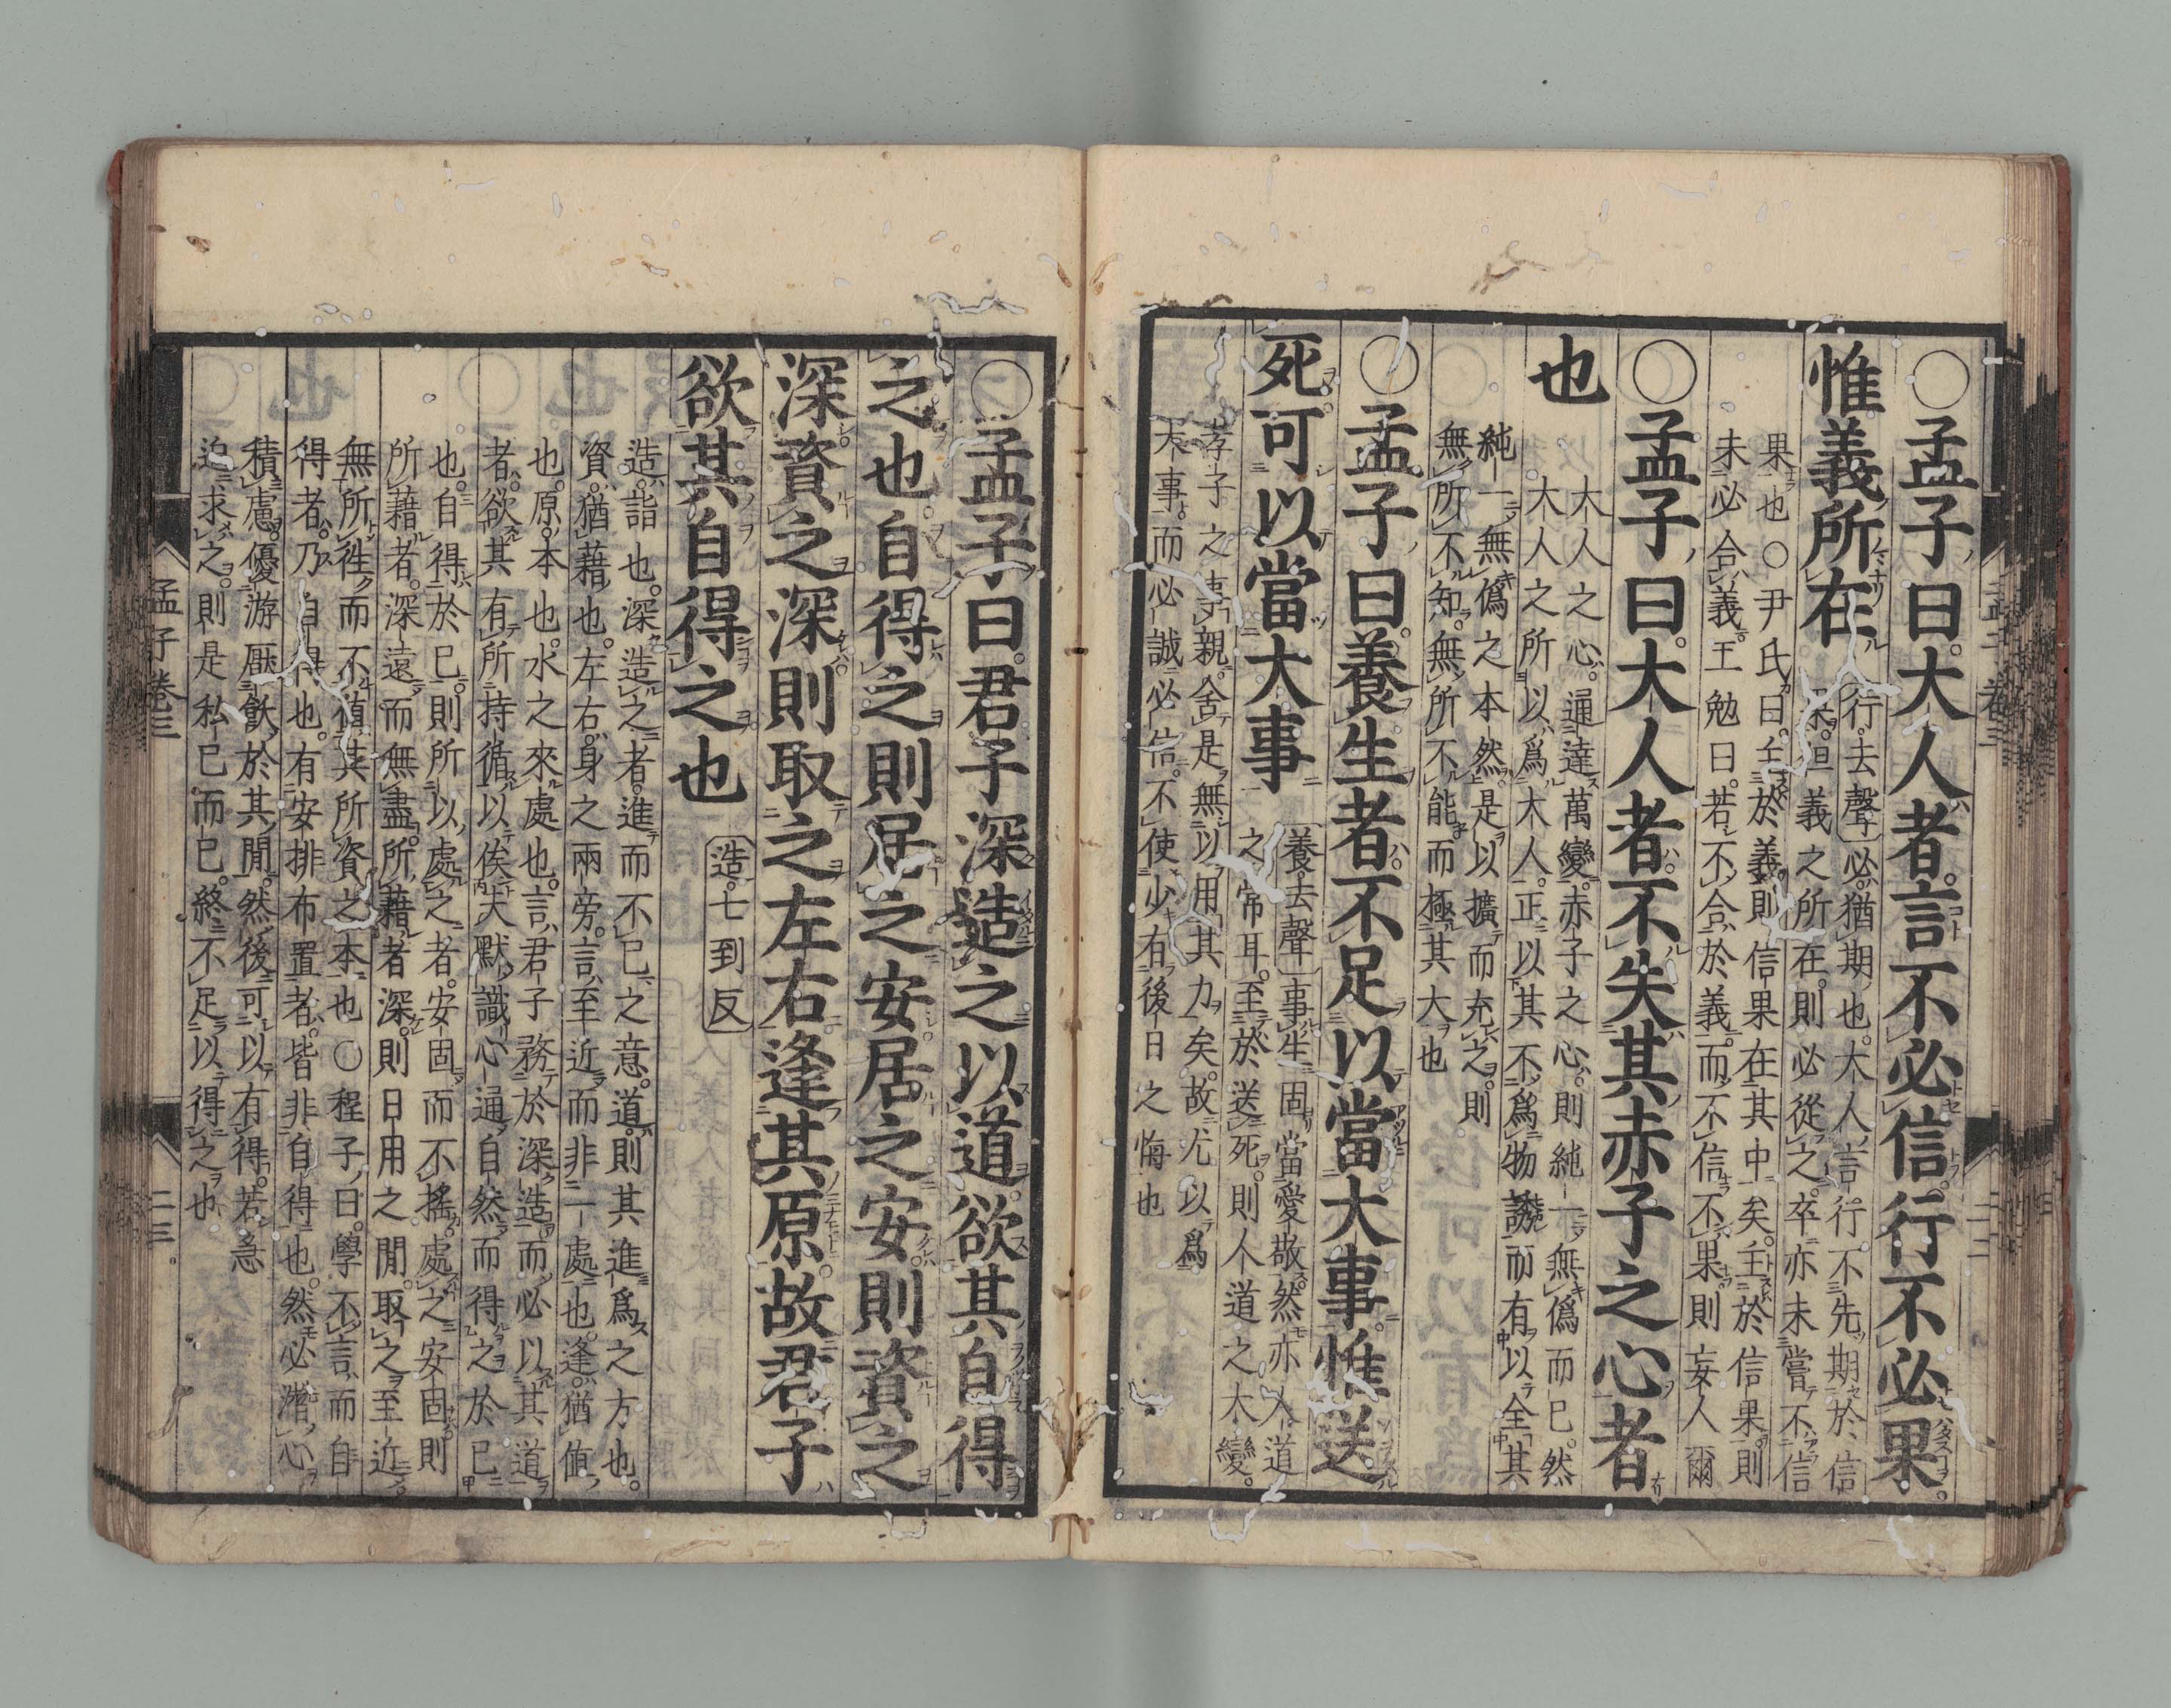 ○孟子曰大人者言不必信行不必果
惟義所在
行去聲必猶期也大人言行不先期於信
果但義之所在則必從之卒亦未嘗不信
果也○尹氏曰主於義則信果在其中矣主於信果則
未必合義王勉曰若不合於義而不信不果則妄人爾
○孟子曰大人者不失其赤子之心者
也
大人之心通達萬變赤子之心則純一無僞而已然
大人之所以爲大人正以其不爲物誘而有以全其
純一無僞之本然是以擴而充之則
無所不知無所不能而極其大也
○孟子曰養生者不足以當大事惟送
死可以當大事
養去聲事生固當愛敬然亦人道
之常耳至於送死則人道之大變
孝子之事親舍是無以用其力矣故尤以爲
大事而必誠必信不使少有後日之悔也
孟子 卷三 二二
○孟子曰君子深造之以道欲其自得
之也自得之則居之安居之安則資之
深資之深則取之左右逢其原故君子
欲其自得之也
造七到反
造詣也深造之者進而不已之意道則其進爲之方也
資猶藉也左右身之兩旁言至近而非一處也逢猶値
也原本也水之來處也言君子務於深造而必以其道
者欲其有所持循以俟夫默識心通自然而得之於己
也自得於己則所以處之者安固而不搖處之安固則
所藉者深遠而無盡所藉者深則日用之閒取之至近
無所徃而不値其所資之本也○程子曰學不言而自
得者乃自得也有安排布置者皆非自得也然必潛心
積慮優游厭飫於其閒然後可以有得若急
迫求之則是私己而已終不足以得之也
孟子 卷三 二三